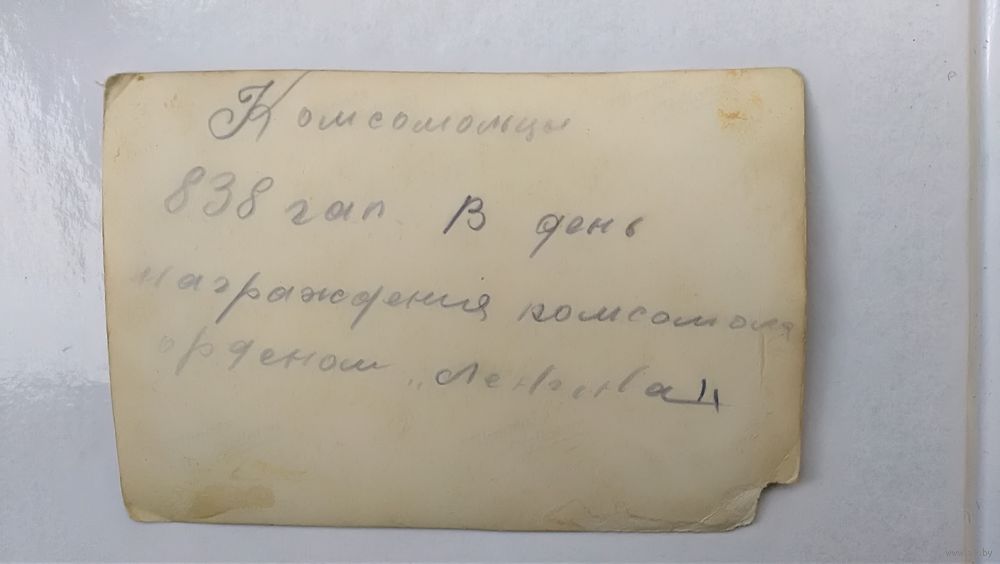 Комсомольцы
838 гап. В день
награждения комсомола
орденом „Ленина"